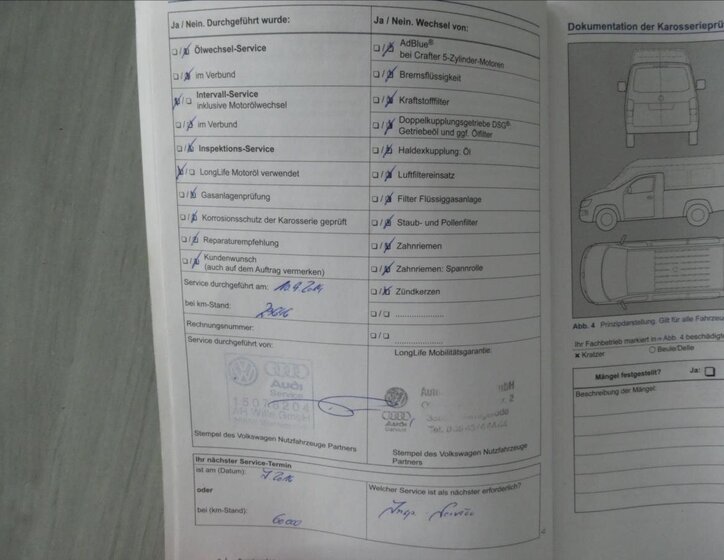 Ja / Nein. Durchgeführt wurde:
Ölwechsel-Service
im Verbund
Intervall-Service
inklusive Motorölwechsel
im Verbund
Inspektions-Service
LongLife Motoröl verwendet
Gasanlagenprüfung
Korrosionsschutz der Karosserie geprüft
Reparaturempfehlung
Kundenwunsch
(auch auf dem Auftrag vermerken)
Service durchgeführt am:
bei km-Stand:
Rechnungsnummer:
Service durchgeführt von:
Audi
Service
Stempel des Volkswagen Nutzfahrzeuge Partners
Ja / Nein. Wechsel von:
AdBlue®
bei Crafter 5-Zylinder-Motoren
Bremsflüssigkeit
Kraftstofffilter
Doppelkupplungsgetriebe DSG®:
Getriebeöl und ggf. Ölfilter
Haldexkupplung: Öl
Luftfiltereinsatz
Filter Flüssiggasanlage
Staub- und Pollenfilter
Zahnriemen
Zahnriemen: Spannrolle
Zündkerzen
LongLife Mobilitätsgarantie:
Audi
Service
Stempel des Volkswagen Nutzfahrzeuge
Partners
Ihr nächster Service-Termin
ist am (Datum):
oder
bei (km-Stand):
60000
Welcher Service ist als nächster erforderlich?
Insp Service
Dokumentation der Karosserieprü
Abb. 4 Prinzipdarstellung. Gilt für alle Fahrzeu
Ihr Fachbetrieb markiert in ⇒ Abb. 4 beschädig
× Kratzer ○ Beule/Delle
Mängel festgestellt? Ja:
Beschreibung der Mängel: